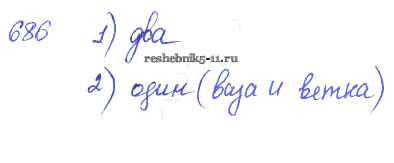 686 1) два
reshebnik5-11.ru
2) один (ваза и ветка)